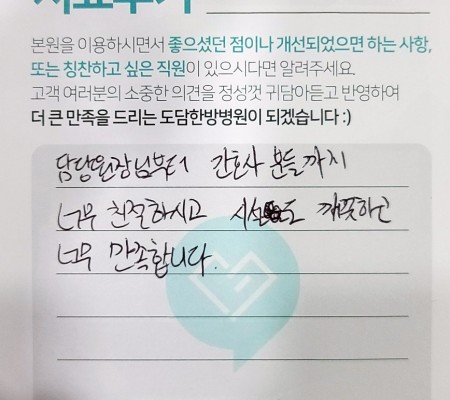 치료후기
본원을 이용하시면서 좋으셨던 점이나 개선되었으면 하는 사항,
또는 칭찬하고 싶은 직원이 있으시다면 알려주세요.
고객 여러분의 소중한 의견을 정성껏 귀담아듣고 반영하여
더 큰 만족을 드리는 도담한방병원이 되겠습니다 :)
담당원장님부터 간호사 분들까지
너무 친절하시고 시설도 깨끗하고
너무 만족합니다.